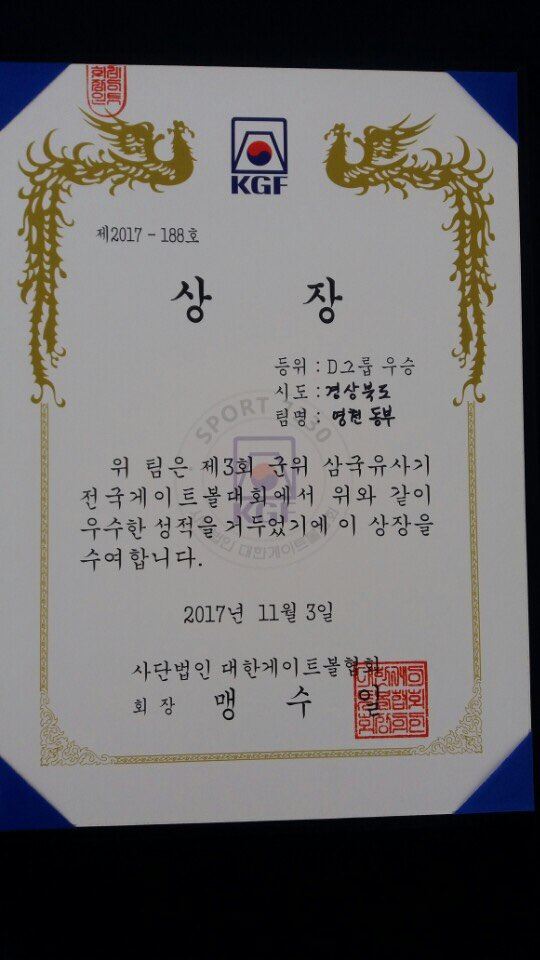 KGF
제2017 - 188호
상 장
등위 : D그룹 우승
시도 : 경상북도
팀명 : 영천 동부
SPORT 7330
위 팀은 제3회 군위 삼국유사기
전국게이트볼대회에서 위와 같이
우수한 성적을 거두었기에 이 상장을
수여합니다.
2017년 11월 3일
사단법인 대한게이트볼협회
회장 맹 수 일